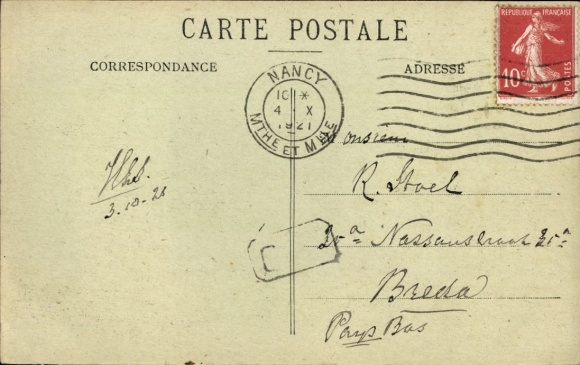 CARTE POSTALE
CORRESPONDANCE
ADRESSE
RÉPUBLIQUE FRANÇAISE
10c
POSTES
NANCY
10 *
4 X
1921
MTHE ET MLLE
3.10.21
Monsieur
R. Stoel
25a Nassaustraat 25a
Breda
Pays Bas